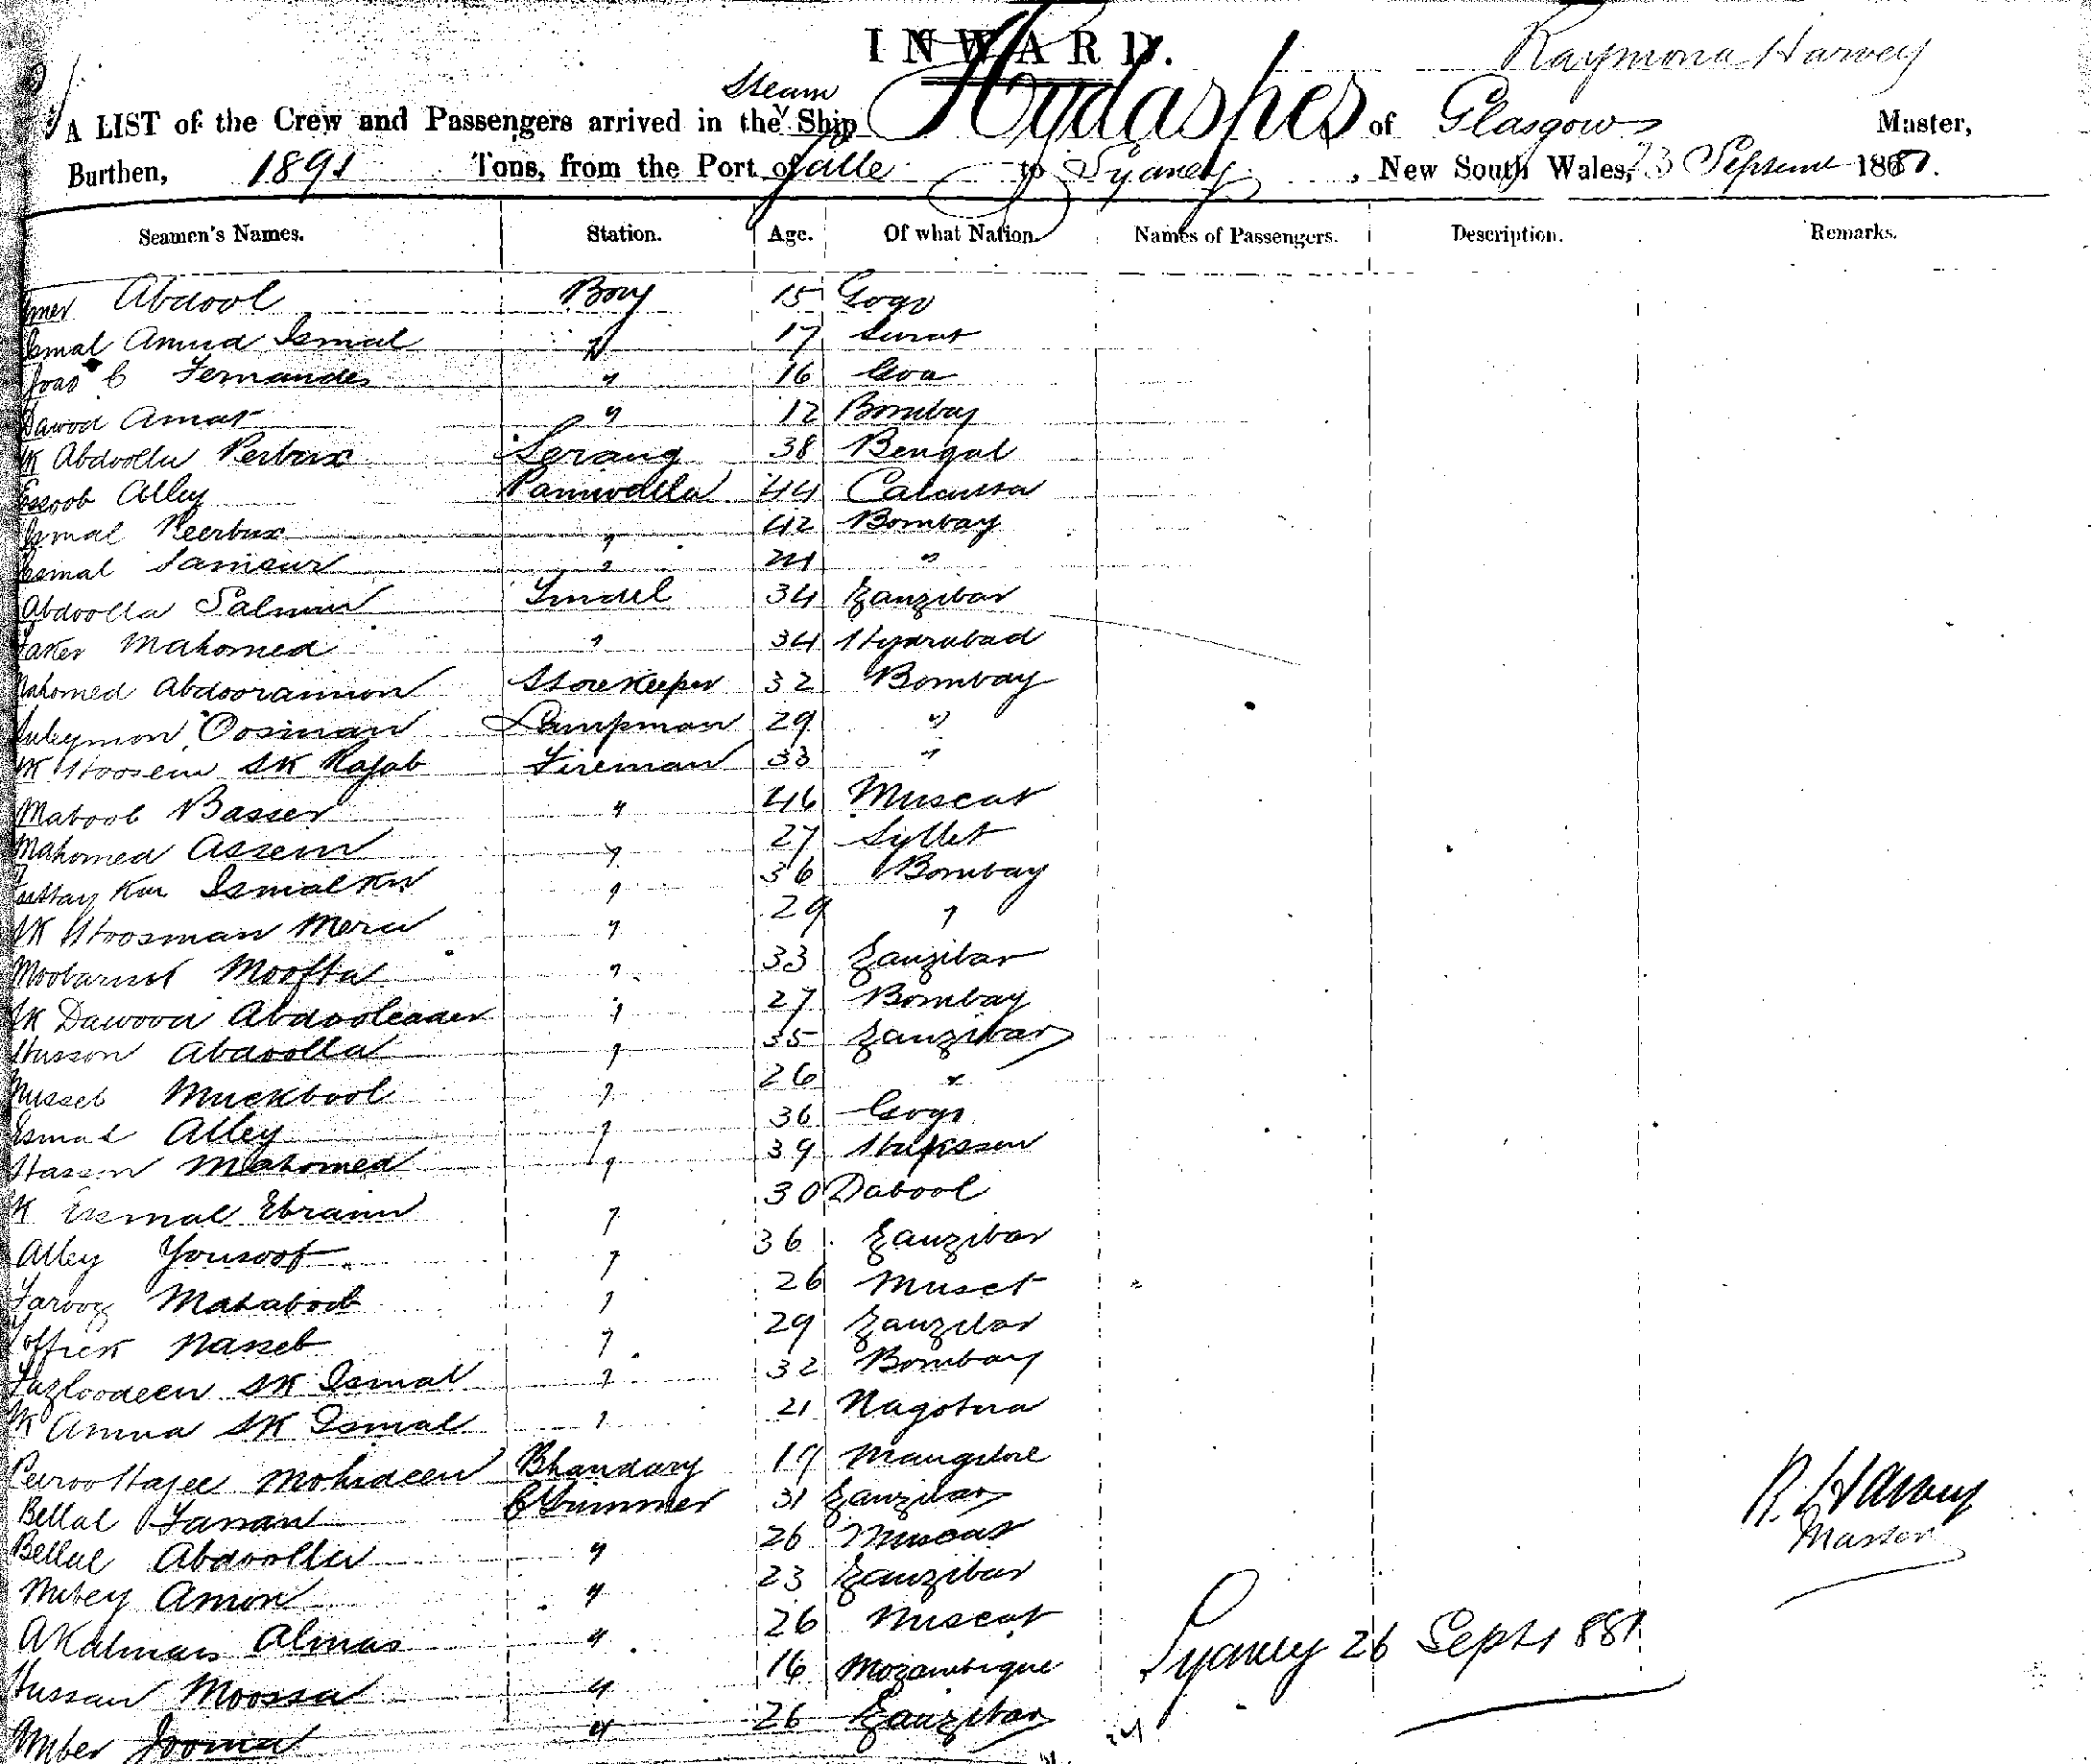 INWARD.
Raymond Harvey
A LIST of the Crew and Passengers arrived in the Steam Ship Hydaspes of Glasgow Master,
Burthen, 1891 Tons, from the Port of Galle to Sydney, New South Wales, 23 Septem 1881.
Seamen's Names. Station. Age. Of what Nation. Names of Passengers. Description. Remarks.
Abdool Boy 15 Gogo
Esmal Amud Ismal " 17 Surat
Joao C Fernandes " 16 Goa
Dawod Amat " 12 Bombay
SK Abdoolla Perbux Serang 38 Bengal
Essoob Alley 44 Calcutta
Esmal Peerbux " 42 Bombay
Esmal " "
Abdoolla Salman Tindel 34 Zanzibar
Mahomed " 34 Hydrabad
Mahomed Abdooramon Storekeeper 32 Bombay
Suleymon Oosman Lampman 29 "
SK Hoosein SK Rajab Fireman 33 "
Maboob Basser " 46 Muscat
Mahomed Assem " 27 Syllet
Ismalkn " 36 Bombay
SK Hoosman Mera " 29 "
Moofta " 33 Zanzibar
SK Dawood Abdooleader " 27 Bombay
Husson Abdoolla " 35 Zanzibar
Nusseb Muckbool " 26 "
Esmal Alley " 36 Gogo
Hassen Mahomed " 39
SK Essmal Ebraim " 30 Dabool
Alley Yousoof " 36 Zanzibar
Farooz Mahaboob " 26 Musct
Nasseb " 29 Zanzibar
Fazloodeen SK Ismal " 32 Bombay
SK Amua SK Ismal " 21 Nagotna
Peeroo Hajee Mohideen Bhandary 19 Mangelore
Bellal Farran C Trimmer 31 Zanzibar
Bellal Abdoolla " 26 Muscat
Mubey Amon " 23 Zanzibar
Almas " 26 Muscat
Hussan Moossa " 16 Mozambique
Amber Jooma " 26 Zanzibar
R. Harvey
Master
Sydney 26 Sept 1881